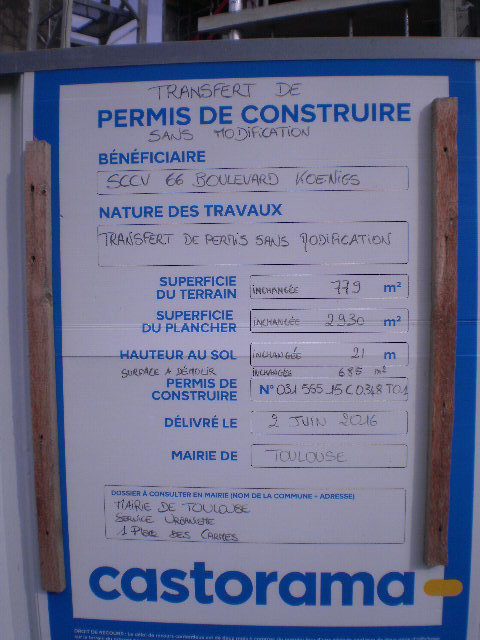 TRANSFERT DE
PERMIS DE CONSTRUIRE
SANS MODIFICATION
BÉNÉFICIAIRE
SCCV 66 BOULEVARD KOENIGS
NATURE DES TRAVAUX
TRANSFERT DE PERMIS SANS MODIFICATION
SUPERFICIE DU TERRAIN INCHANGÉE 779 m²
SUPERFICIE DU PLANCHER INCHANGÉE 2930 m²
HAUTEUR AU SOL INCHANGÉE 21 m
SURFACE A DÉMOLIR INCHANGÉE 685 m²
PERMIS DE CONSTRUIRE N° 031 555 15 C 0348 T01
DÉLIVRÉ LE 2 JUIN 2016
MAIRIE DE TOULOUSE
DOSSIER À CONSULTER EN MAIRIE (NOM DE LA COMMUNE - ADRESSE)
MAIRIE DE TOULOUSE
SERVICE URBANISME
1 PLACE DES CARMES
castorama
DROIT DE RECOURS : Le délai de recours contentieux est de deux mois à compter